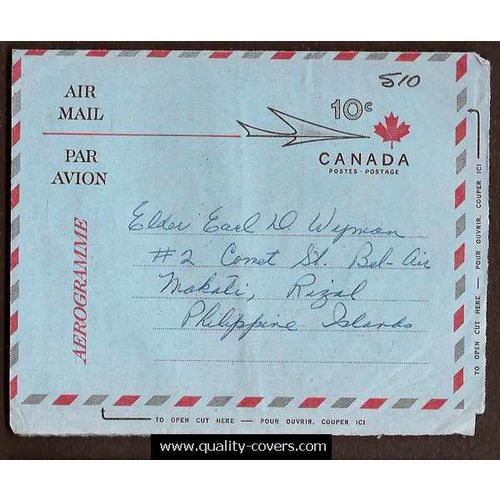 510
AIR
MAIL
10c
CANADA
POSTES · POSTAGE
PAR
AVION
AEROGRAMME
Elder Earl D. Wyman
#2 Comet St. Bel-Air
Makati, Rizal
Philippine Islands
TO OPEN CUT HERE — POUR OUVRIR, COUPER ICI
TO OPEN CUT HERE — POUR OUVRIR, COUPER ICI
www.quality-covers.com